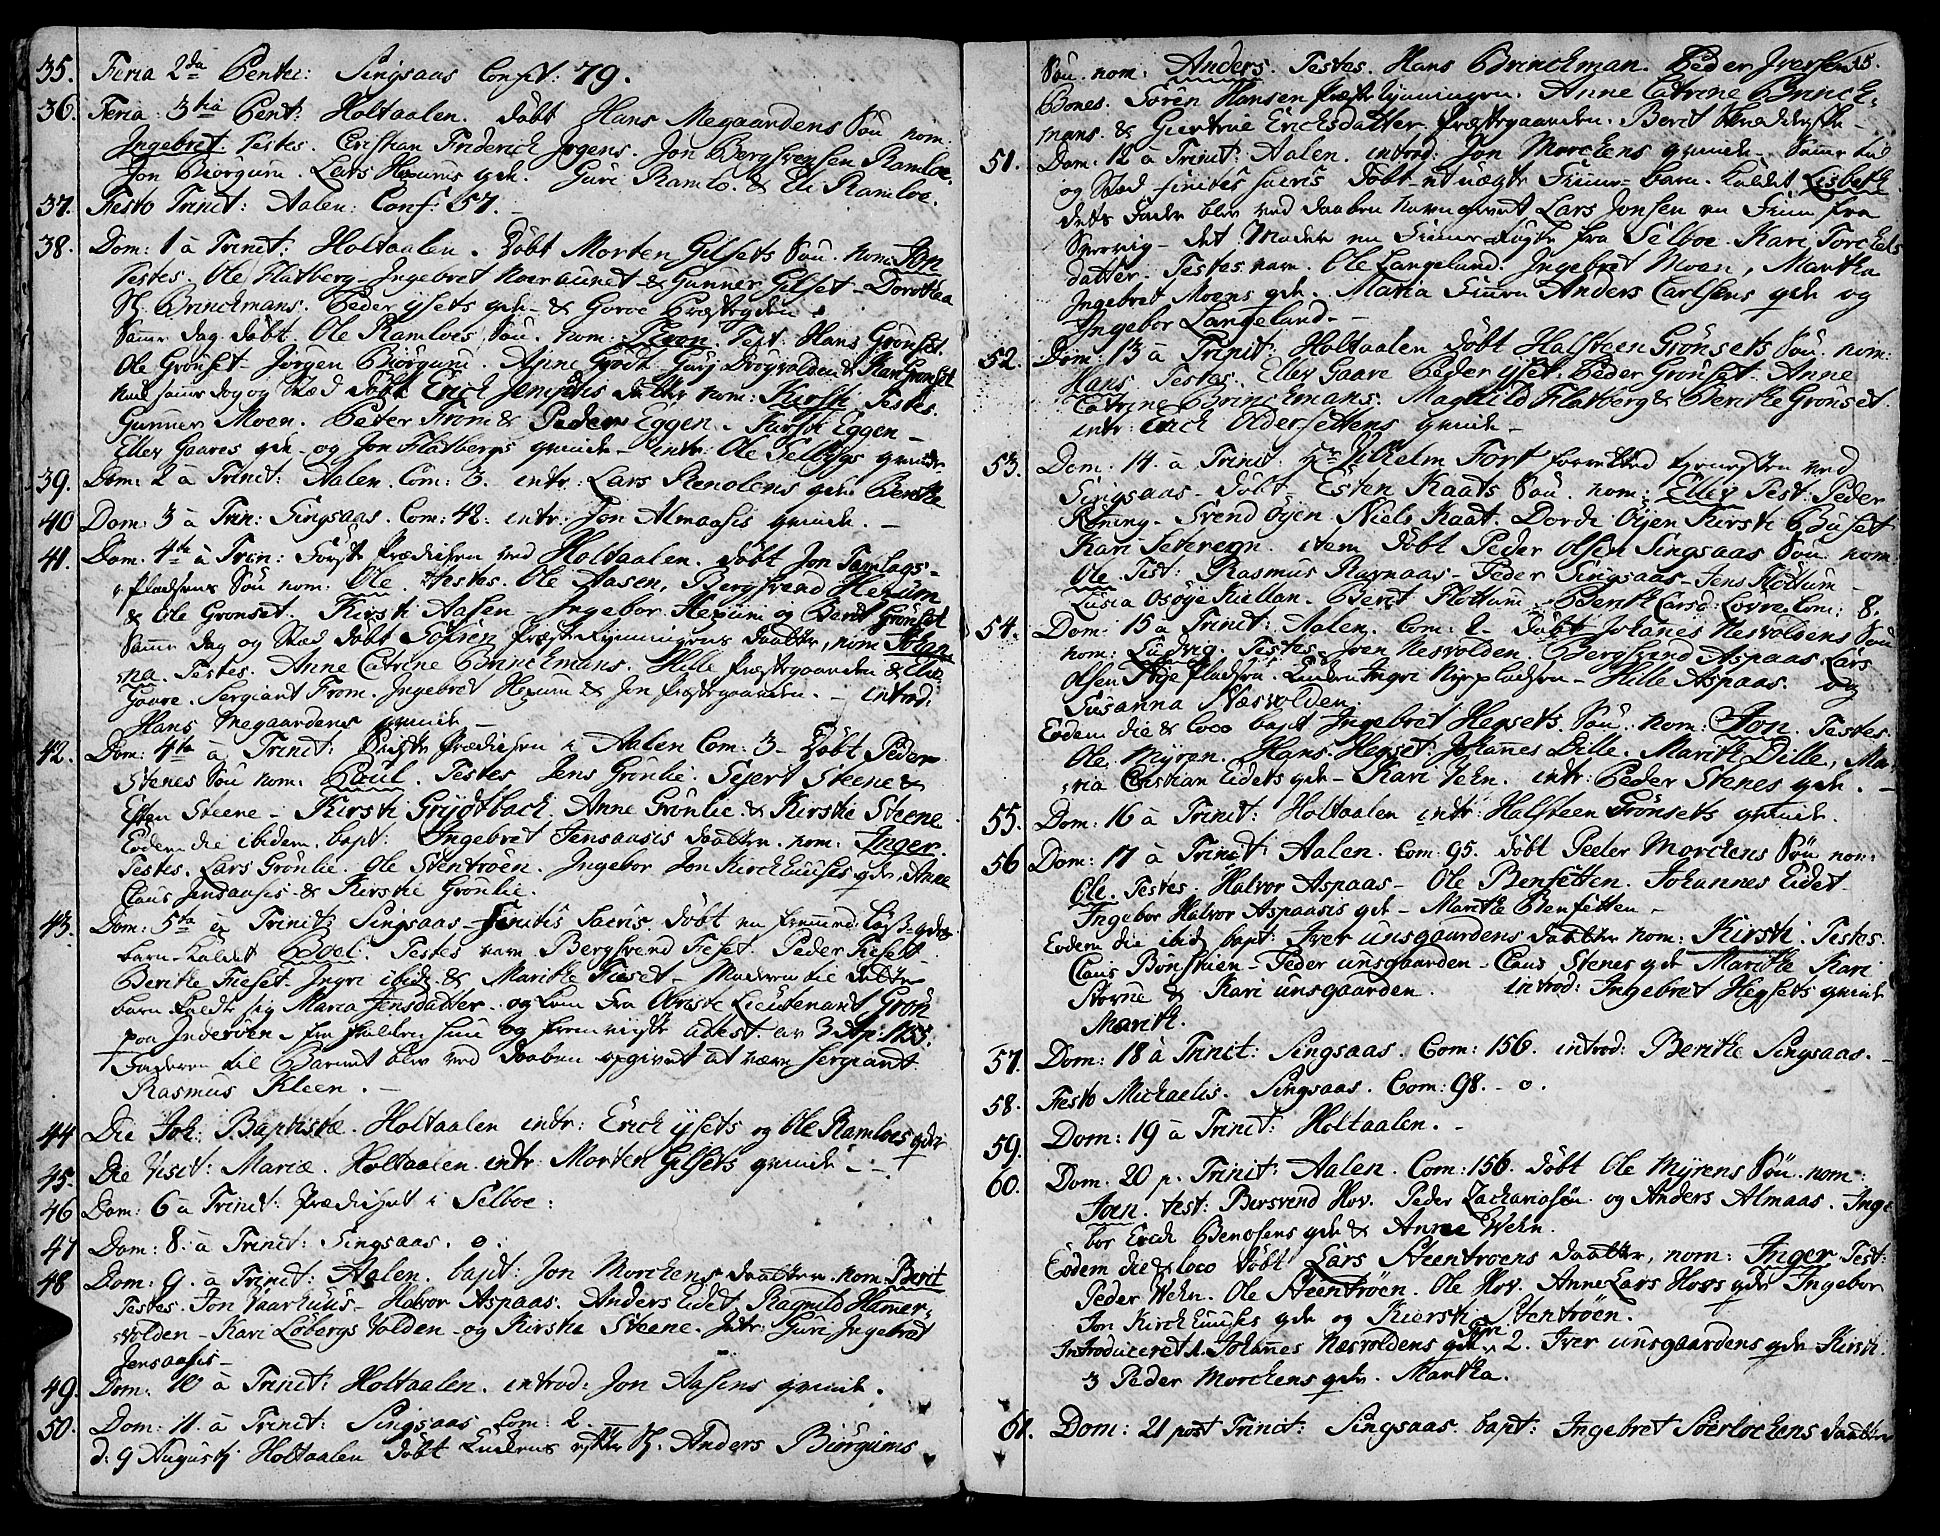 35. Feria 2da Pentec: Singsaas Confit: 79.
36. Feria 3tia Pent: Holtaalen. døbt Hans Megaardens Søn nom:
Ingebret. Testes. Cristian Friderich Jrgens. Jon Bergsvensen Ramloe.
Jon Biørgum. Lars Hexums qde. Guri Ramlo. & Eli Ramloe.
37. Festo Trinit: Aalen: Conf: 57. -
38. Dom: 1 à Trinit: Holtaalen. Døbt Morten Gilsets Søn. nom: Jon
Testes. Ole Flatberg. Ingebret & Gunner Gilset - Dorothea
Sl. Brinchmans. Peder ysets qde - & Goroe
Samme Dag døbt. Ole Ramloes Søn. nom: Test. Hans Grønset.
Ole Grønset - Jørgen Biørgum. Anne Grødt. Gurj Drøyvolden & Mari Grønset
samme dag og Stæd døbt Erich Jensens datter nom: Kirsti. Testes.
Gunner Moen. Peter From & Peder Eggen. Kirsti Eggen -
Eller Gaares qde - og Jon Flatbergs qvinde - intr: Ole qvinde
39. Dom: 2 à Trinit: Aalen. Com: 3. intr: Lars Renolens qde Berithe
40 Dom: 3 à Trin: Singsaas. Com: 42: intr: Jon Almaasis qvinde. -
41. Dom: 4te à Trin: første Prædichen ved Holtaalen. døbt Jon Tamlags-
pladsens Søn nom: Ole. Testes. Ole Aasen, Bergsvend Hexum
& Ole Grønset. Kirsti Aasen - Ingebor Hexum og Berit Grønset
Samme dag og Stæd døbt Søfren datter, nom Johan
na. Testes. Anne Catrine Brinchmans. Hille Præstegaarden &
Gaare. Sergiant From. Ingebret Hexum & Jon Præstgaarden. - introd:
Hans Megaardens qvinde -
42. Dom: 4ta à Trinit: Prædichen i Aalen Com: 3 - Døbt Peder
Stenes Søn nom: Poul. Testes Jens Grønlie. Sejert Steene &
Esten Steene - Kirsti Grytbach. Anne Grønlie. & Kirstie Steene
Eodem die ibidem. bapt: Ingebret Jensaasis daatter. nom: Inger.
Testes. Lars Grønlie. Ole Stentrøen. Ingebor Jon Kirchhuuses qde. Anne
Claus Jensaasis - & Kirstie Grønlie.
43. Dom: 5ta à Trinit: Singsaas - Finitis Sacris. døbt en fremmed
barn kaldet Boel: Testes vare Bergsvend Fieset. Peder Fieset
Berithe Fieset. Ingri ibid: & Marithe Fieset - Moderen til dette
barn kaldte sig Maria Jensdatter. og kom fra Obriste Lieutenant Grøn
paa Inderøen - fra sine og fremviste attest. av 3 Apr: 1755.
Faderen til Barnet blev ved Daaben opgivet at være Sergiant
Rasmus Kleen. -
44 Die Joh: Baptistæ. Holtaalen intr: Erich ysets og Ole Ramloes qder
45. Die Visit: Mariæ. Holtaalen intr: Morten Gilsets qvinde. -
46 Dom: 6 à Trinit: Prædichet i Selboe:
47 Dom: 8. à Trinit: Singsaas. o.
48 Dom: 9. à Trinit: Aalen. bapt: Jon Morchens daatter. nom: Berit
Testes. Jon Vaarhuus - Halvor Aspaas. Anders Eidet, Ragnild Hamer-
volden - Kari Løbergs Volden - og Kirstie Steene. Intr: Guri Ingebret
Jensaasis -
49. Dom: 10 à Trinit: Holtaalen. introd: Jon Aasens qvinde.
50. Dom: 11. à Trinit: Singsaas Com: 2.
d: 9 Augustj Holtaalen døbt Sl: Anders Biørgums
15.
Søn. nom: Anders. Testes. Hans Brinchman. Peder Iversen
Bones. Søren Hansen. Anne Catrine Brinch-
mans. & Giertrue Erichsdatter Præstegaarden. Berit
51. Dom: 12 à Trinit: Aalen. introd: Jon Morchens qvinde - Samme tid
og Stæd finitis sacris Døbt et uægte Finne-barn. kaldet Lisbeth
dets Fader blev ved daaben Navngivet Lars Jonsen en Fin fra
- det. Moder en Finne fra Selboe. Kari Torchels
datter. Testes vare. Ole Langeland. Ingebret Moen, Martha
Ingebret Moens qde. Maria Finne Anders Carlsens qde og
Ingebor Langeland. -
52. Dom: 13 à Trinit: Holtaalen døbt Halsteen Grønsets Søn. nom:
Hans. Testes. Eller Gaare Peder yset. Peder Grønset. Anne
Catrine Brinchmans. Magnild Flatberg & Berithe Grønset.
intr: Erich Oldersettens qvinde -
53. Dom: 14. à Trinit: Hr Vilhelm Fort forrettede tienesten ved
Singsaas - døbt Esten Kaats Søn. nom: Elliv Test: Peder
Røning - Svend Øyen. Niels Kaat. Dorde Øijen Kirsti Buset
Kari item døbt Peder Olsen Singsaas Søn nom:
Ole. Test: Rasmus Rognaas - Peder Singsaas - Jens Flottum -
Lusia Kiellan. Berit Flottum - Com: 8.
54. Dom: 15 à Trinit: Aalen. Com: 2 - døbt Johannes Nesvoldens Søn
nom: Ludvig. Testes. Joen Nesvolden. Bergsvend Aspaas. Lars
Olsen. Ingri - Hille Aspaas. og
Susanna Næsvolden.
Eodem die & loco bapt Ingebret Hegsets Søn. nom: Jon. Testes.
Ole Myren. Hans Hegset. Johannes Dille. Marith Dille, Ma-
ria Cristian Eidets qde - Kari Vehn. intr: Peder Stenes qde. -
55. Dom: 16 à Trinit: Holtaalen intr: Halsteen Grønsets qvinde.
56 Dom: 17 à Trinit: Aalen. Com: 95. døbt Peder Morchens Søn nom:
Ole. Testes. Halvor Aspaas - Ole Bensetten. Johannes Eidet
Ingebor Halvor Aspaasis qde - Marithe Bensetten -
Eodem die ibid bapt: Iver Unsgaardens daatter nom: Kirsti. Testes.
Claus Bonshuen - Peder Unsgaarden - Claus Stenes qde Marithe Kari
& Kari Unsgaarden. introd: Ingebret Hegsets qvinde
Marith.
57. Dom: 18 à Trinit: Singsaas. Com: 156. introd: Berithe Singsaas. -
58. Festo Michaelis. Singsaas. Com: 98. - o.
59. Dom: 19 à Trinit: Holtaalen. -
60. Dom: 20 p. Trinit: Aalen. Com: 156. døbt Ole Myrens Søn nom:
Joen. test: Bersvend Hov. Peder Zachariasøn og Anders Almaas. Inge
bor Erich Bendsens qde & Anne Vehn.
Eodem die & loco døbt Lars Steentroens daatter, nom: Inger Test:
Peder Vehn. Ole Steentrøen. Ole Hov. Anne Lars Hovs qde Ingebor
Jon Kirchhuuses qde og Kiersti Stentrøen.
Introduceret 1. Johannes Næsvoldens qde. 2. Iver Unsgaardens qde Kirsti.
3 Peder Morchens qde. Martha.
61. Dom: 21 post Trinit: Singsaas. bapt: Ingebret Soerlochens daatter